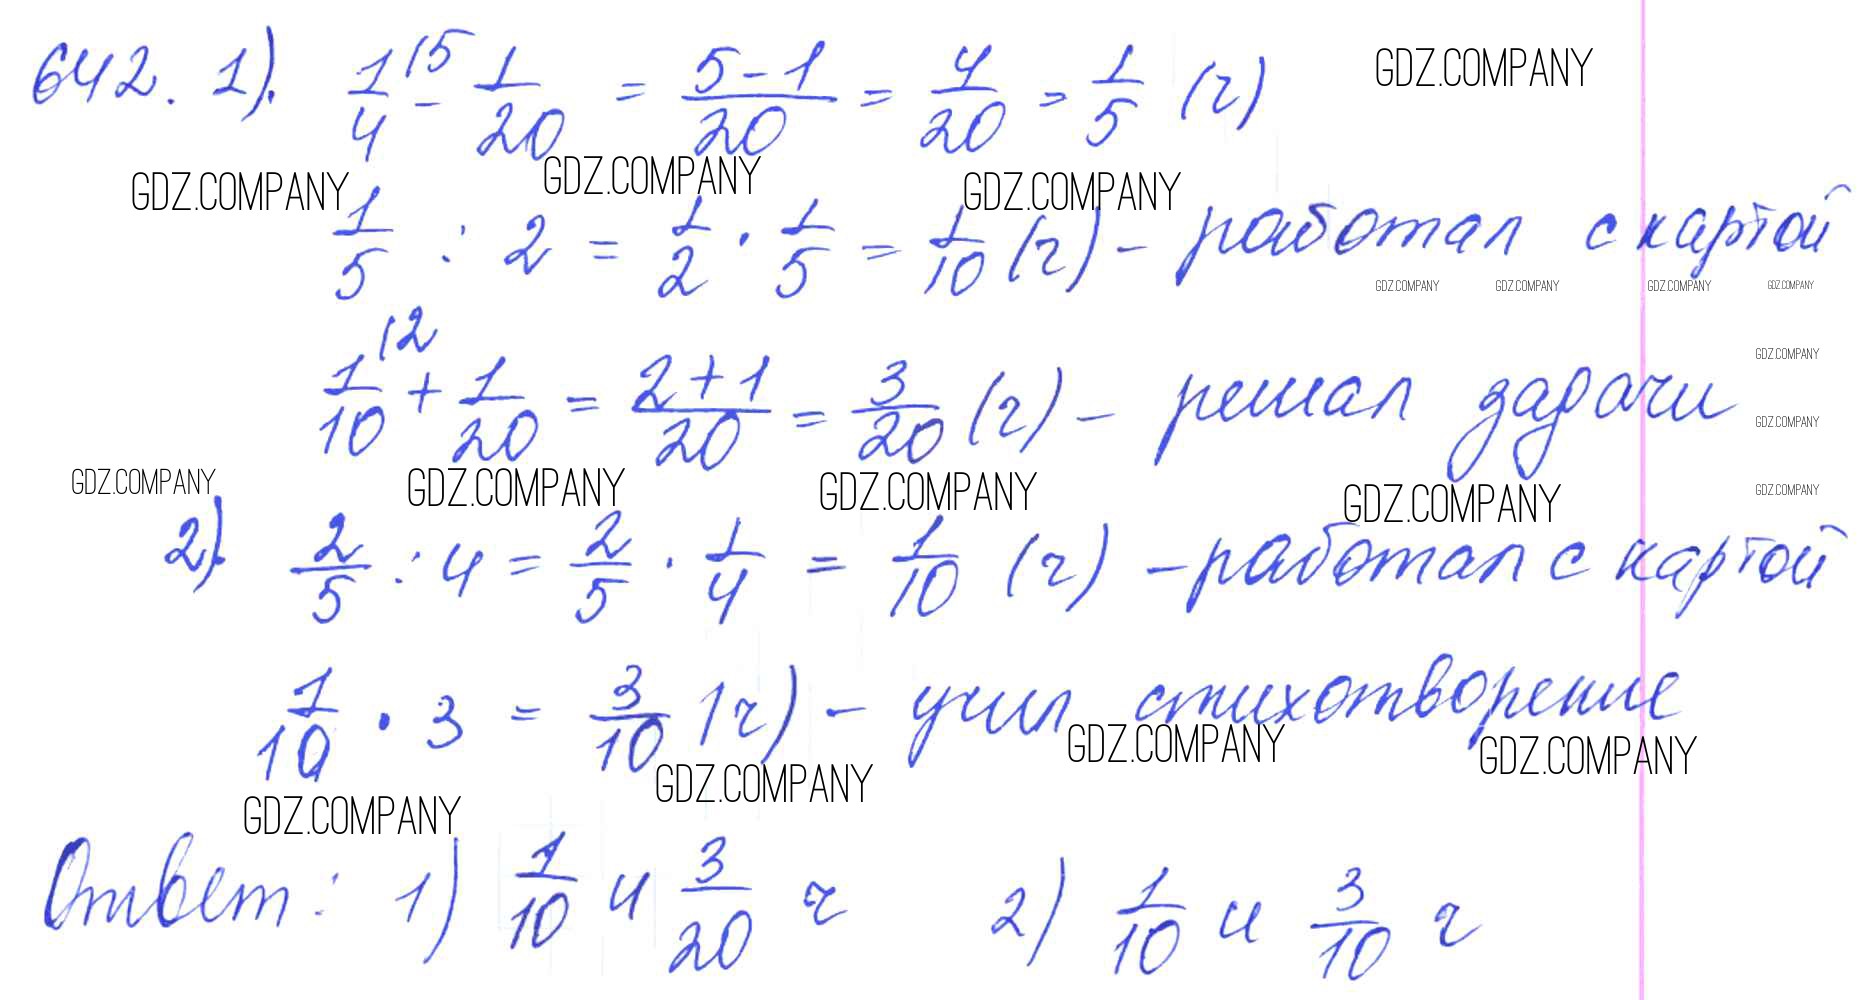 642. 1). 1/4 (5 - 1/20 = 5-1/20 = 4/20 = 1/5 (ч)
GDZ.COMPANY
GDZ.COMPANY GDZ.COMPANY GDZ.COMPANY
1/5 : 2 = 1/2 · 1/5 = 1/10 (ч) - работал с картой
GDZ.COMPANY GDZ.COMPANY GDZ.COMPANY GDZ.COMPANY
GDZ.COMPANY
1/10 (2 + 1/20 = 2+1/20 = 3/20 (ч) - решал задачи
GDZ.COMPANY
GDZ.COMPANY GDZ.COMPANY GDZ.COMPANY GDZ.COMPANY GDZ.COMPANY
2). 2/5 : 4 = 2/5 · 1/4 = 1/10 (ч) - работал с картой
1/10 · 3 = 3/10 (ч) - учил стихотворение
GDZ.COMPANY GDZ.COMPANY GDZ.COMPANY
GDZ.COMPANY
Ответ: 1) 1/10 и 3/20 ч 2) 1/10 и 3/10 ч